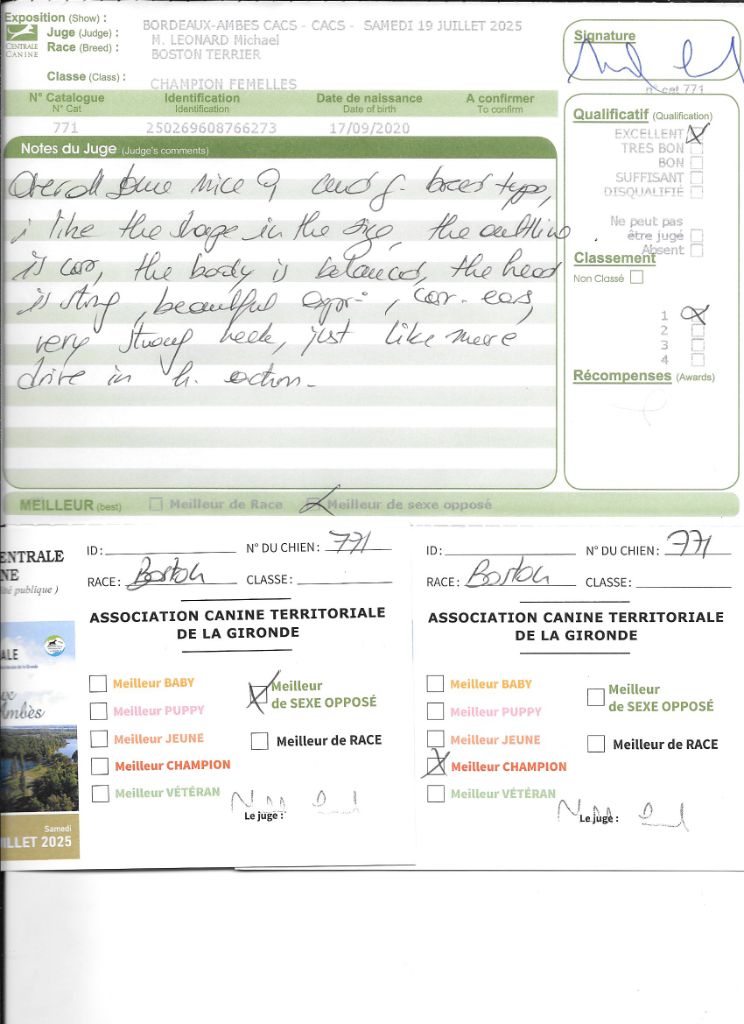 Exposition (Show) :
BORDEAUX-AMBES CACS - CACS - SAMEDI 19 JUILLET 2025
CENTRALE CANINE
Juge (Judge) :
M. LEONARD Michael
Race (Breed) :
BOSTON TERRIER
Classe (Class) :
CHAMPION FEMELLES
Signature
n° cat 771
N° Catalogue Identification Date de naissance A confirmer
N° Cat Identification Date of birth To confirm
771 250269608766273 17/09/2020
Notes du Juge (Judge's comments)
Overall some nice of breed type,
i like the shape in the size, the outline
is corr, the body is balanced, the head
is strong, beautiful expr-, corr. ears,
very strong neck, just like more
drive in h. action.
Qualificatif (Qualification)
EXCELLENT
TRES BON
BON
SUFFISANT
DISQUALIFIÉ
Ne peut pas
être jugé
Absent
Classement
Non Classé
1
2
3
4
Récompenses (Awards)
MEILLEUR (best) Meilleur de Race Meilleur de sexe opposé
ENTRALE
NE
ité publique )
ALE
ux
Ambès
Samedi
ILLET 2025
ID : N° DU CHIEN : 771
RACE : Boston CLASSE :
ASSOCIATION CANINE TERRITORIALE
DE LA GIRONDE
Meilleur BABY
Meilleur PUPPY
Meilleur JEUNE
Meilleur CHAMPION
Meilleur VÉTÉRAN
Meilleur
de SEXE OPPOSÉ
Meilleur de RACE
Le juge :
ID : N° DU CHIEN : 771
RACE : Boston CLASSE :
ASSOCIATION CANINE TERRITORIALE
DE LA GIRONDE
Meilleur BABY
Meilleur PUPPY
Meilleur JEUNE
Meilleur CHAMPION
Meilleur VÉTÉRAN
Meilleur
de SEXE OPPOSÉ
Meilleur de RACE
Le juge :